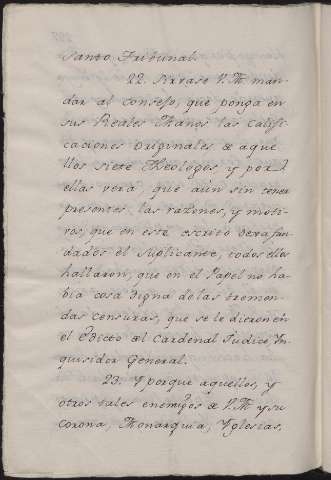 Santo Tribunal.
22. Sirvase V.M. man-
dar al Consejo, que ponga en
sus Reales Manos las califi-
caciones originales de aque-
llos siete Theologos, y por
ellas verá, que aún sin tener
presentes las razones, y moti-
vos, que en este escrito dexa fun-
dados el Suplicante, todos ellos
hallaron, que en el Papel no ha-
bia cosa digna de las tremen-
das censuras, que se le dieron en
el Edicto del Cardenal Judice, Yn-
quisidor General.
23. Y porque aquellos, y
otros tales enemigos de V.M. y su
Corona, Monarquia, Yglesias,